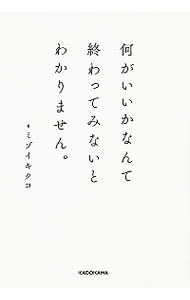 何がいいかなんて
終わってみないと
わかりません。
ミゾイキクコ
KADOKAWA